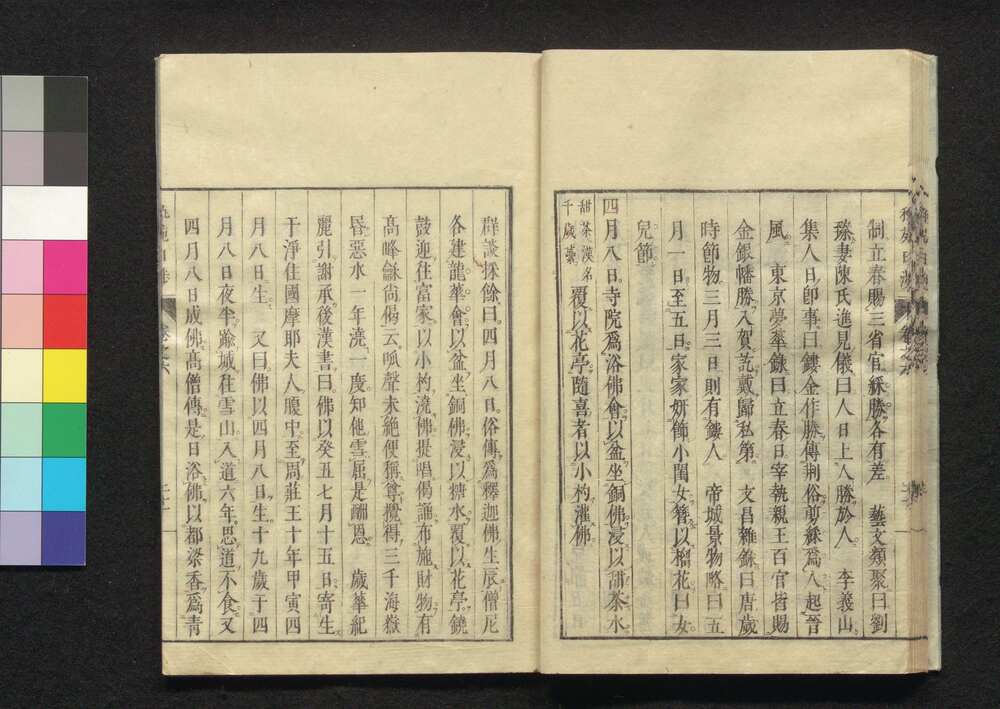 制立春賜三省官綵勝各有差　藝文類聚曰劉
臻妻陳氏進見儀曰人日上人勝於人　李義山
集人日卽事曰鏤金作勝傳荆俗剪綵爲人起晉
風　東京夢華錄曰立春日宰執親王百官皆賜
金銀幡勝入賀訖戴歸私第　文昌雜錄曰唐歲
時節物三月三日則有鏤人　帝城景物略曰五
月一日至五日家家姸飾小閨女簪以榴花曰女
兒節
四月八日寺院爲浴佛會以盆坐銅佛浸以甜茶水
甜茶漢名
千歲虆
覆以花亭隨喜者以小杓灌佛
群談採餘曰四月八日俗傳爲釋迦佛生辰僧尼
各建龍華會以盆坐銅佛浸以糖水覆以花亭鐃
鼓迎往富家以小杓澆佛提唱偈誦布施財物有
高峰龢尚偈云呱聲未絶便稱尊攪得三千海嶽
昏惡水一年澆一度知他雪屈是酬恩　歲華紀
麗引謝承後漢書曰佛以癸丑七月十五日寄生
于淨住國摩耶夫人腹中至周莊王十年甲寅四
月八日生　又曰佛以四月八日生十九歲于四
月八日夜半踰城往雪山入道六年思道不食又
四月八日成佛高僧傳是日浴佛以都梁香爲靑